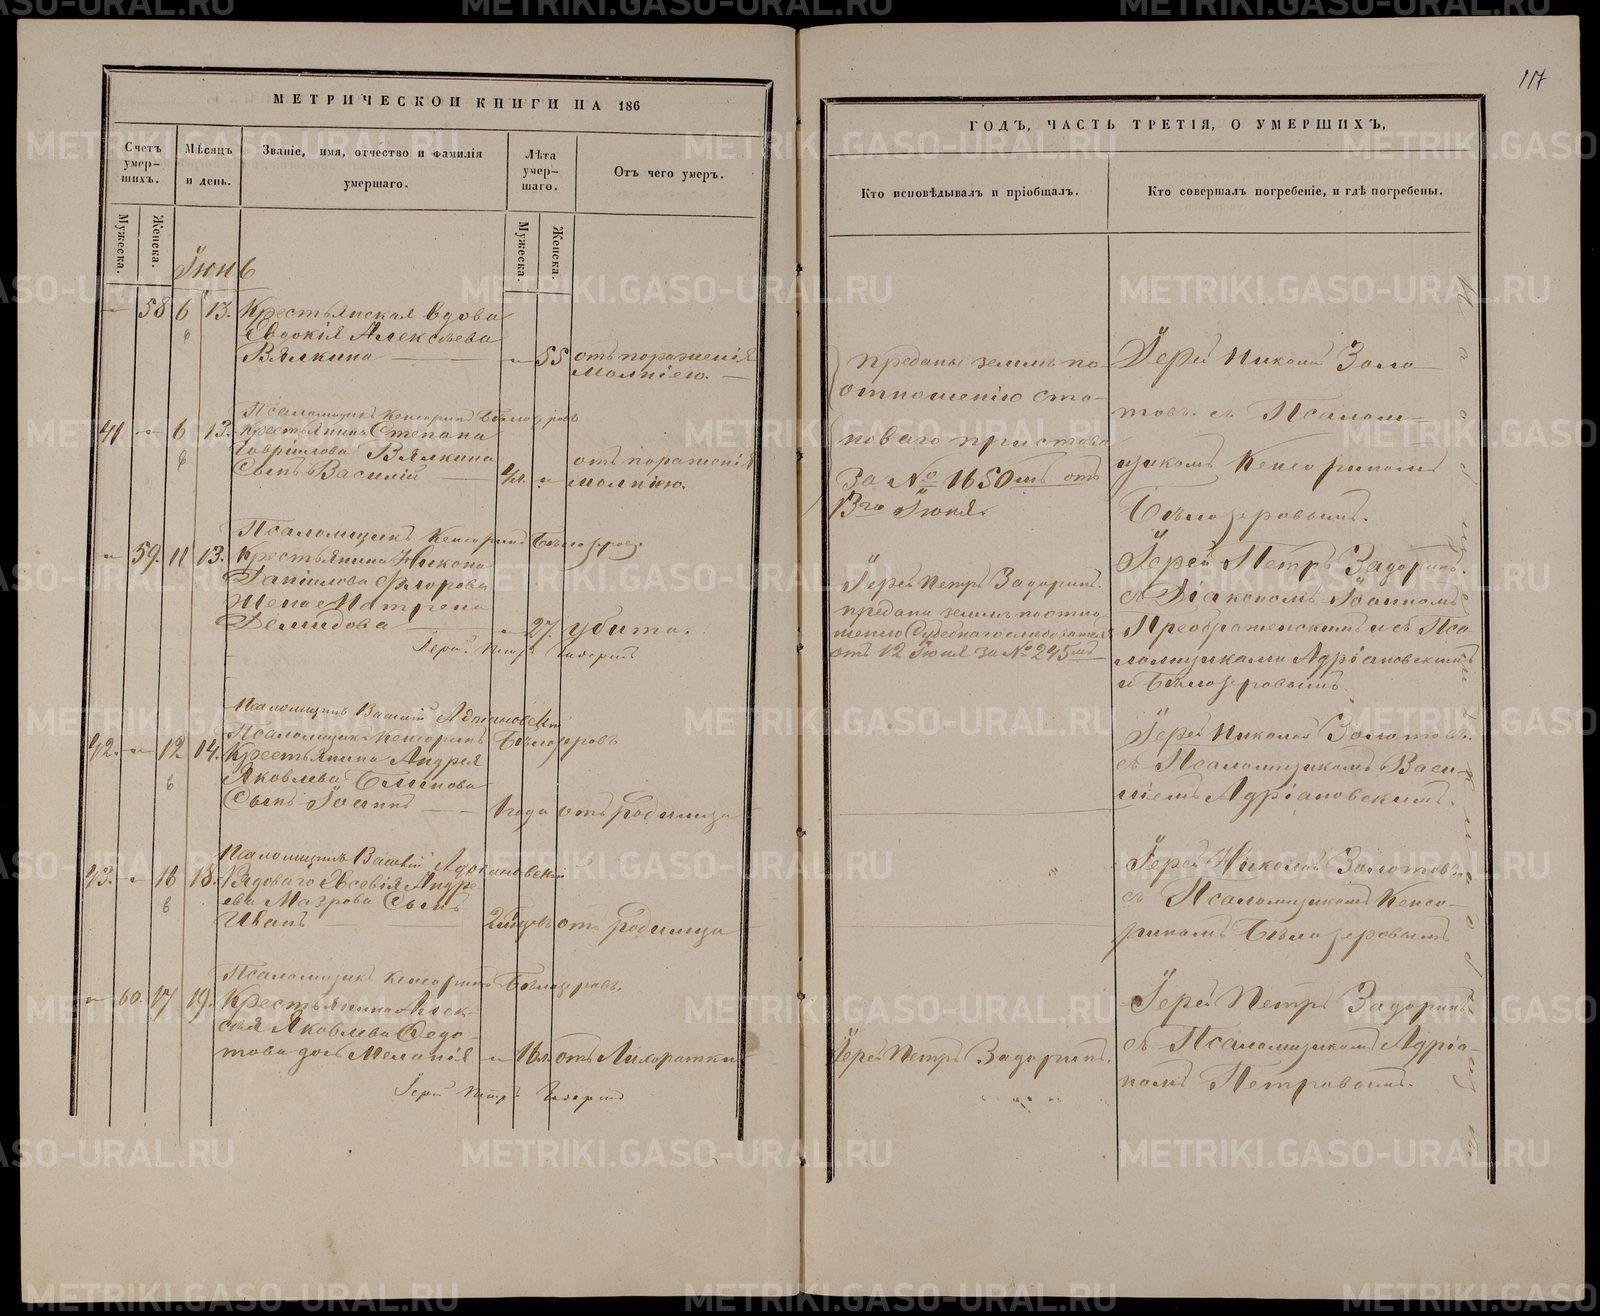 МЕТРИЧЕСКОЙ КНИГИ НА 186
Счетъ умер-шихъ.
Мѣсяцъ и день.
Званіе, имя, отчество и фамилія умершаго.
Лѣта умер-шаго.
Отъ чего умеръ.
Мужеска.
Женска.
Мужеска.
Женска.
Іюнь
58 6 13. Крестьянская вдова
Евдокія Алексѣева
Вялкина 55 отъ пораженія
молніею.
Псаломщикъ Кенсоринъ Бѣлозеровъ
41 6 13. Крестьянина Степана
Гавріилова Вялкина
Сынъ Василій отъ пораженія
молніею.
Псаломщикъ Кенсоринъ Бѣлозеровъ
59. 11 13. Крестьянина Никона
Даніилова Ѳ
Жена Матрена
Демидова 27. убита.
Іерей Петръ Задоринъ
Псаломщикъ Василій Адріановскій
Псаломщикъ Кенсоринъ Бѣлозеровъ
42. 12 14. Крестьянина Андрея
Яковлева Блинова
Сынъ Іоаннъ 1 года отъ родимца
Псаломщикъ Василій Адріановскій
43. 16 18. Рядоваго Евсевія Андре-
ева Мазрова Сынъ
Иванъ отъ родимца
Псаломщикъ Кенсоринъ Бѣлозеровъ.
60. 17 19. Крестьянина Алек-
сѣя Яковлева Федо-
това дочь Меланія отъ Лихоратки
Іерей Петръ Задоринъ
117
ГОДЪ, ЧАСТЬ ТРЕТІЯ, О УМЕРШИХЪ,
Кто исповѣдывалъ и пріобщалъ.
Кто совершалъ погребеніе, и гдѣ погребены.
преданы землѣ по
отношенію ста-
новаго пристава
за № 1650мъ отъ
13го Іюня.
Іерей Николай Золо-
товъ съ Псалом-
щикомъ Кенсориномъ
Бѣлозеровымъ.
Іерей Петръ Задоринъ.
предана землѣ по отно-
шенію Судебнаго слѣдователя
отъ 12 Іюня за № 245мъ
Іерей Петръ Задоринъ
съ Діакономъ Іоанномъ
Преображенскимъ и съ Пса-
ломщиками Адріановскимъ
и Бѣлозеровымъ.
Іерей Николай Золотовъ
съ Псаломщикомъ Васи-
ліемъ Адріановскимъ.
Іерей Николай Золотовъ
съ Псаломщикомъ Кенсо-
риномъ Бѣлозеровымъ
Іерей Петръ Задоринъ.
Іерей Петръ Задоринъ
съ Псаломщикомъ Адріа-
номъ Петровымъ.
METRIKI.GASO-URAL.RU